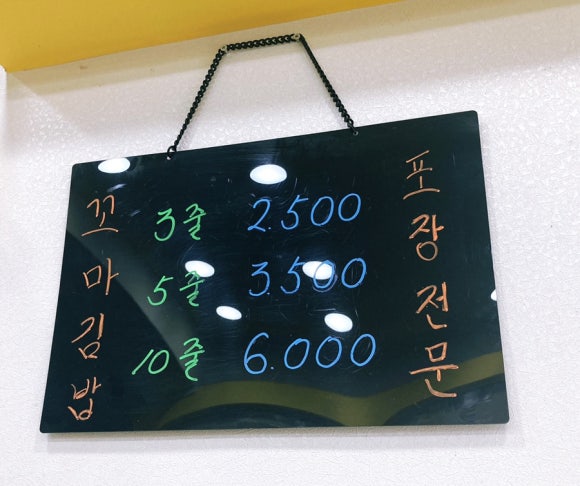 꼬마김밥
3줄 2.500
5줄 3.500
10줄 6.000
포장전문